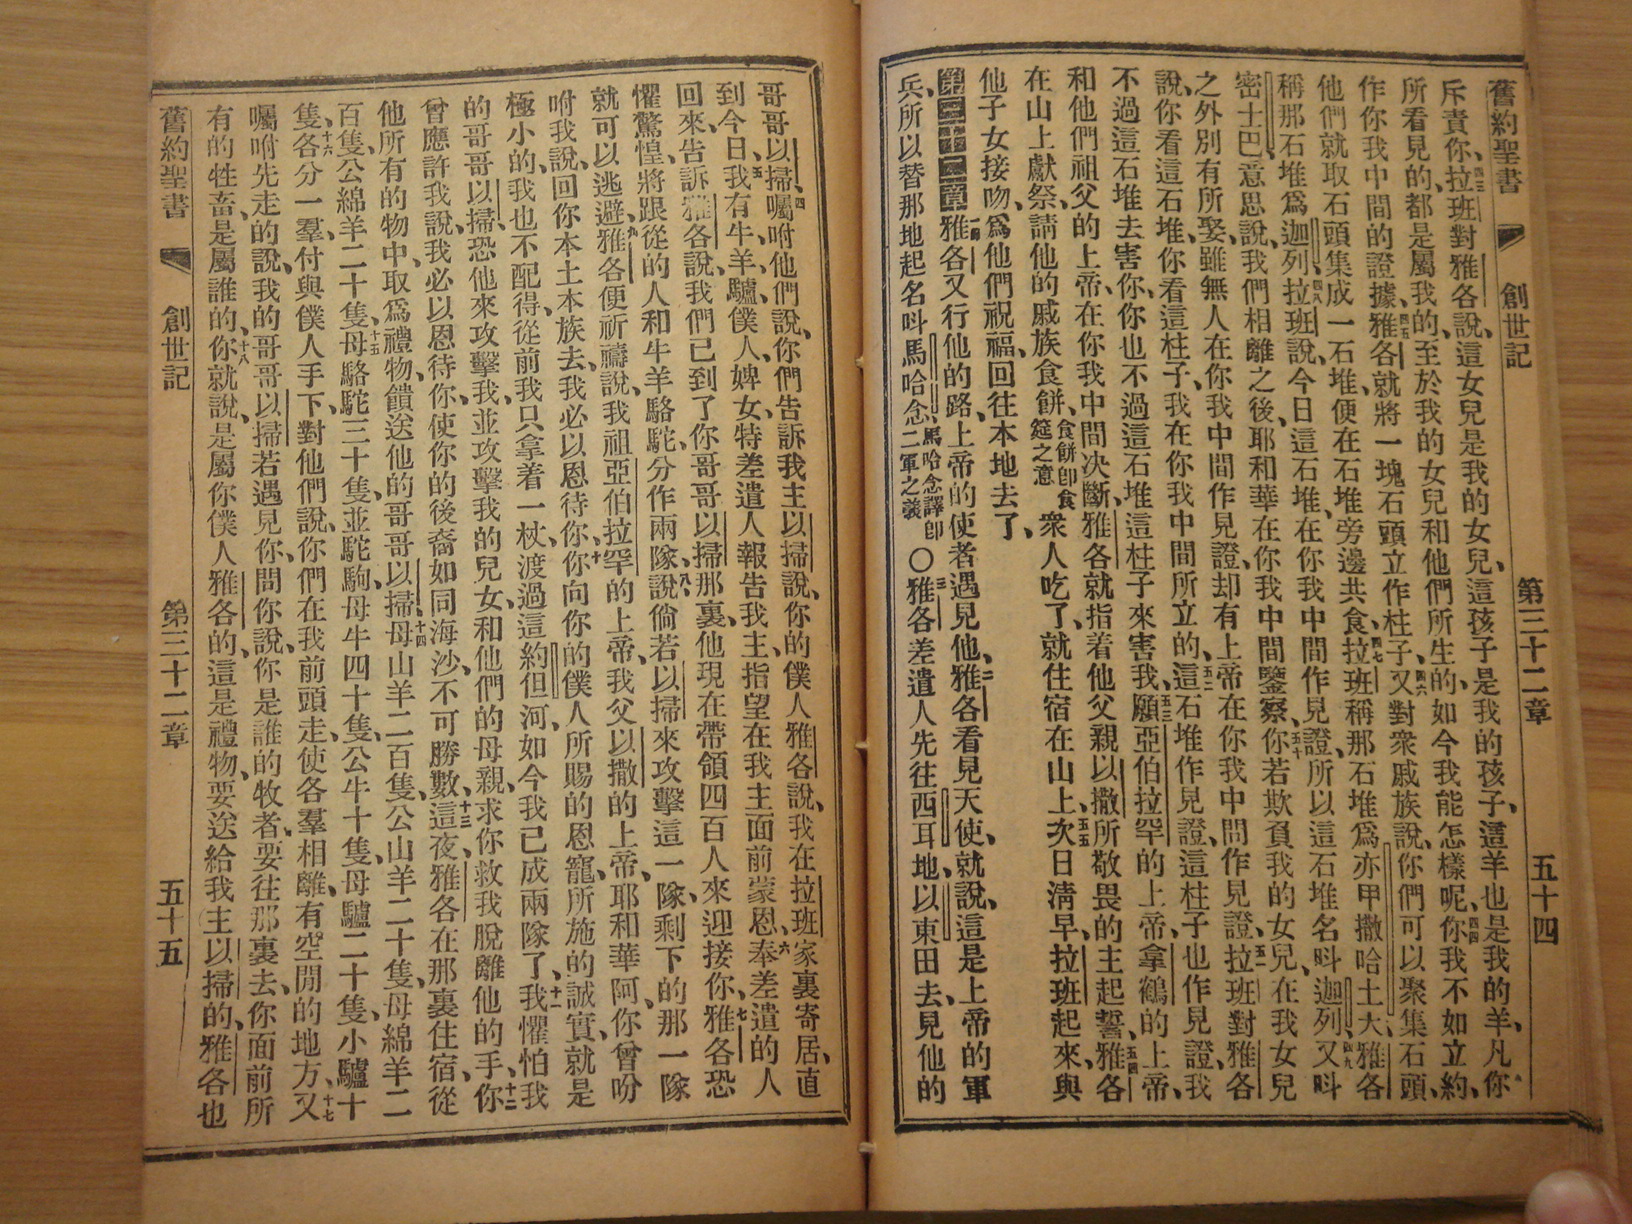 舊約聖書 創世記 第三十二章 五十四
斥責你、四三拉班對雅各說、這女兒是我的女兒、這孩子是我的孩子、這羊也是我的羊、凡你
所看見的、都是屬我的、至於我的女兒和他們所生的、如今我能怎樣呢、四四你我不如立約、
作你我中間的證據、四五雅各就將一塊石頭立作柱子、四六又對衆戚族說、你們可以聚集石頭、
他們就取石頭集成一石堆、便在石堆旁邊共食、四七拉班稱那石堆爲亦甲撒哈土大、雅各
稱那石堆爲迦列、四八拉班說、今日這石堆、在你我中間作見證、所以這石堆名呌迦列、四九又呌
密士巴、意思說、我們相離之後、耶和華在你我中間鑒察、五十你若欺負我的女兒、在我女兒
之外別有所娶、雖無人在你我中間作見證、却有上帝在你我中間作見證、五一拉班對雅各
說、你看這石堆、你看這柱子、我在你我中間所立的、五二這石堆作見證、這柱子也作見證、我
不過這石堆去害你、你也不過這石堆這柱子來害我、五三願亞伯拉罕的上帝、拿鶴的上帝、
和他們祖父的上帝、在你我中間决斷、雅各就指着他父親以撒所敬畏的主起誓、五四雅各
在山上獻祭、請他的戚族食餅、食餅卽食筵之意衆人吃了、就住宿在山上、五五次日淸早、拉班起來、與
他子女接吻、爲他們祝福、回往本地去了、
第三十二章 一雅各又行他的路、上帝的使者遇見他、二雅各看見天使、就說、這是上帝的軍
兵、所以替那地起名呌馬哈念、馬哈念譯卽二軍之義〇三雅各差遣人先往西耳地、以東田去、見他的
哥哥以掃、四囑咐他們說、你們告訴我主以掃說、你的僕人雅各說、我在拉班家裏寄居、直
到今日、五我有牛、羊、驢、僕人、婢女、特差遣人報告我主、指望在我主面前蒙恩、六奉差遣的人
回來、告訴雅各說、我們已到了你哥哥以掃那裏、他現在帶領四百人、來迎接你、七雅各恐
懼驚惶、將跟從的人和牛羊駱駝、分作兩隊、八說、倘若以掃來攻擊這一隊、剩下的那一隊
就可以逃避、九雅各便祈禱說、我祖亞伯拉罕的上帝、我父以撒的上帝、耶和華阿、你曾吩
咐我說、回你本土本族去、我必以恩待你、十你向你的僕人所賜的恩寵、所施的誠實、就是
極小的、我也不配得、從前我只拿着一杖、渡過這約但河、如今我已成兩隊了、十一我懼怕我
的哥哥以掃、恐他來攻擊我、並攻擊我的兒女、和他們的母親、求你救我脫離他的手、十二你
曾應許我說、我必以恩待你、使你的後裔如同海沙、不可勝數、十三這夜雅各在那裏住宿、從
他所有的物中、取爲禮物、餽送他的哥哥以掃、十四母山羊二百隻、公山羊二十隻、母綿羊二
百隻、公綿羊二十隻、十五母駱駝三十隻、並駝駒、母牛四十隻、公牛十隻、母驢二十隻、小驢十
隻、十六各分一羣、付與僕人手下、對他們說、你們在我前頭走、使各羣相離、有空閒的地方、十七又
囑咐先走的說、我的哥哥以掃若遇見你、問你說、你是誰的牧者、要往那裏去、你面前所
有的牲畜、是屬誰的、十八你就說、是屬你僕人雅各的、這是禮物、要送給我主以掃的、雅各也
舊約聖書 創世記 第三十二章 五十五